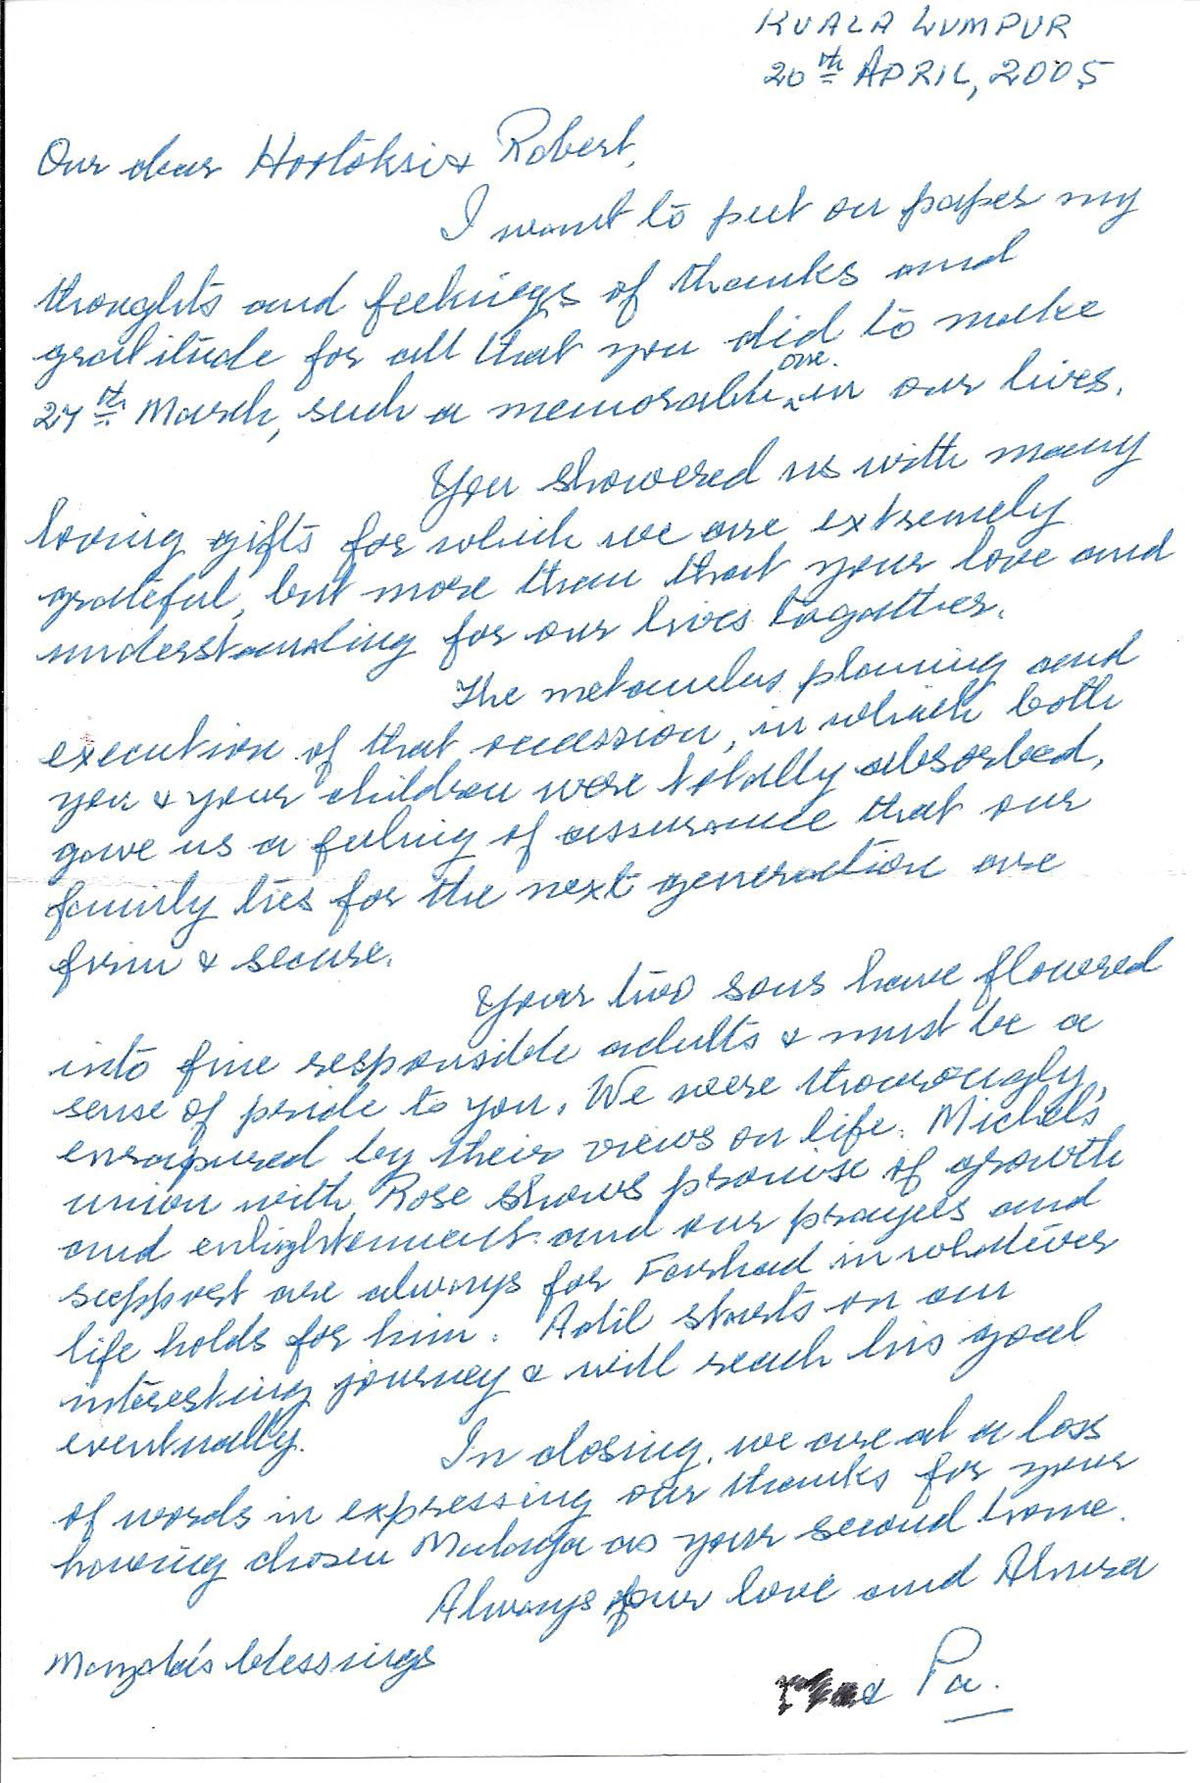 KUALA LUMPUR
20th APRIL, 2005
Our dear Hortoksi & Robert,
I want to put on paper my
thoughts and feelings of thanks and
gratitude for all that you did to make
27th March, such a memorable one in our lives.
You showered us with many
loving gifts for which we are extremely
grateful, but more than that your love and
understanding for our lives togather.
The metaculus planning and
execution of that occassion, in which both
you & your children were totally absorbed,
gave us a feeling of assurance that our
family ties for the next generation are
firm & secure.
Your two sons have flowered
into fine responsible adults & must be a
sense of pride to you. We were thouroughly
by their views on life. Michel's
union with Rose shows promise of growth
and enlightenment and our prayers and
support are always for Farhad in whatever
life holds for him. Adil starts on an
interesting journey & will reach his goal
eventually. In closing, we are at a loss
of words in expressing our thanks for your
having chosen Malaya as your second home.
Always our love and Ahura
Mazda's blessings
& Pa.